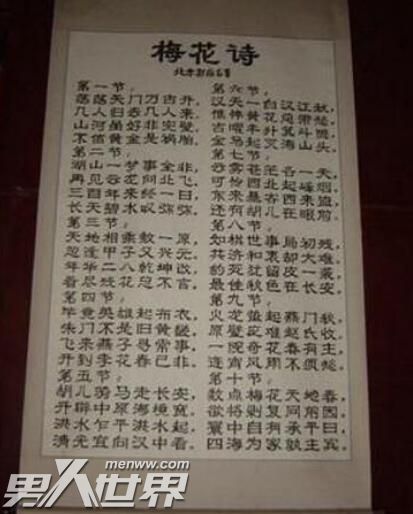 梅花诗
北宋邵雍
第一节：
荡荡天门万古开，
几人归去几人来。
山河虽好非完璧，
不信黄金是祸胎。
第二节：
湖山一梦事全非，
再见云 向北飞。
三百年来终一日，
长天碧水叹弥弥。
第三节：
天地相乘数一原，
忽逢甲子又兴元。
年华二八乾坤改，
看尽残花总不言。
第四节：
毕竟英雄起布衣，
朱门不是旧黄畿。
飞来燕子寻常事，
开到李花春已非。
第五节：
胡儿骑马走长安，
开辟中原海境宽。
洪水乍平洪水起，
清光宜向汉中看。
第六节：
汉天一白汉江秋，
憔悴黄花总带愁。
吉曜半升箕斗隐，
金乌起灭海山头。
第七节：
云雾苍茫各一天，
可怜西北起烽烟。
东来暴客西来盗，
还有胡儿在眼前。
第八节：
如棋世事局初残，
共济和衷却大难。
豹死犹留皮一袭，
最佳秋色在长安。
第九节：
火龙蛰起燕门秋，
原璧应难赵氏收。
一院奇花春有主，
连宵风雨不须愁。
第十节：
数点梅花天地春，
欲将剥复问前因。
寰中自有承平日，
四海为家孰主宾。
menww.com
男人世界